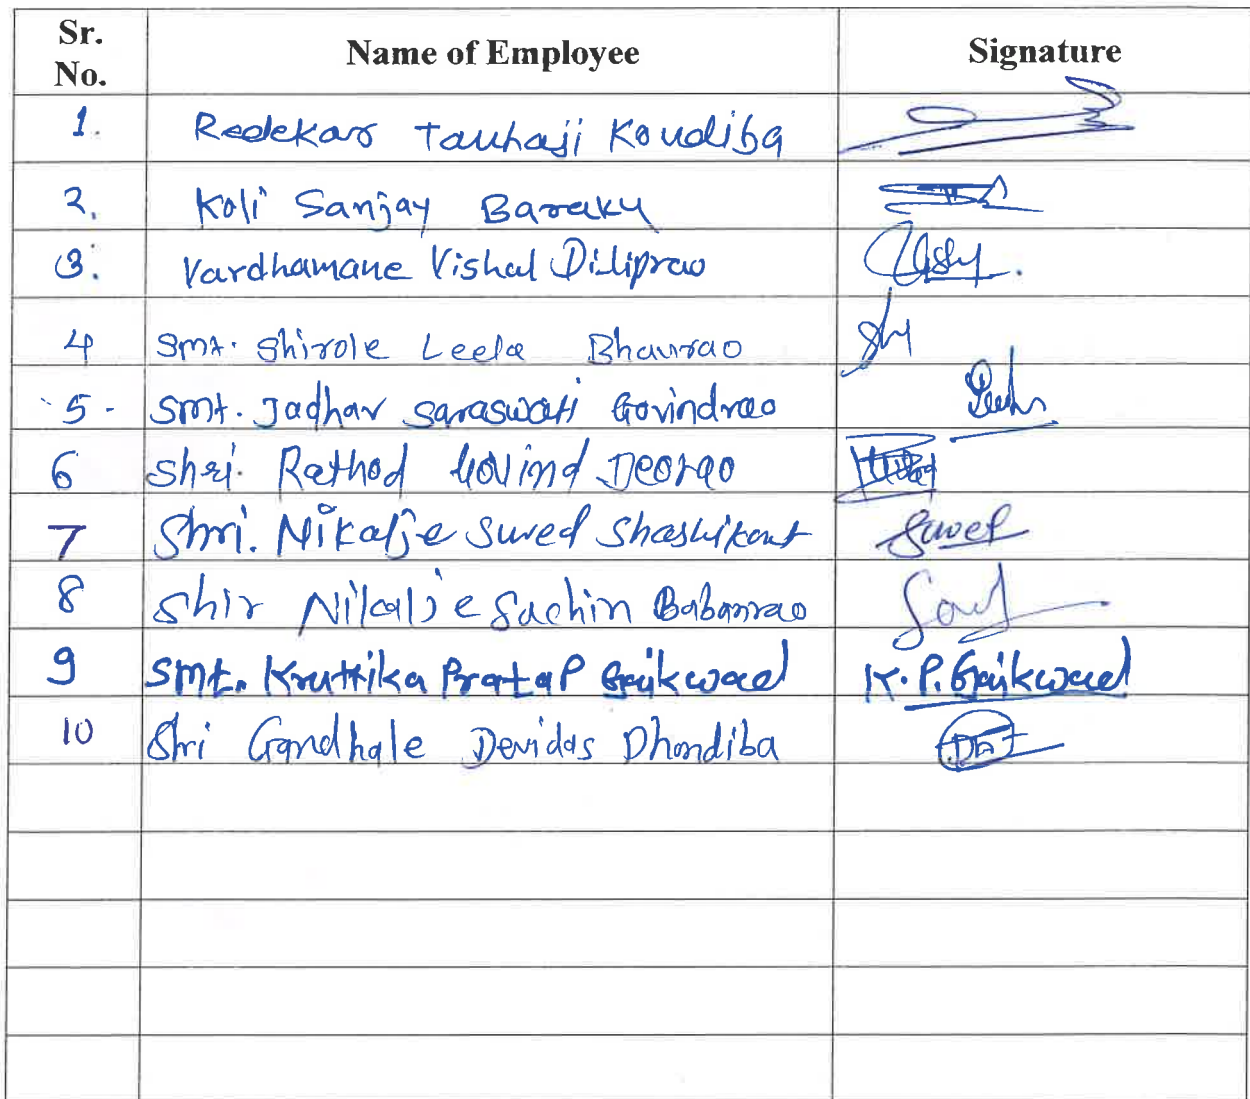 Sr. No. Name of Employee Signature
1. Redekar Tanhaji Kondiba
2. Koli Sanjay Baraku
3. Vardhamane Vishal Diliprao
4 Smt. Shirole Leela Bhaurao
5 - Smt. Jadhav Saraswati Govindrao
6 Shri. Rathod Govind Deorao
7 Shri. Nikalje Sured Shashikant
8 Shir Nikalje Sachin Babanrao
9 Smt. Kruttika Pratap Gaikwad K.P. Gaikwad
10 Shri Gandhale Devidas Dhondiba